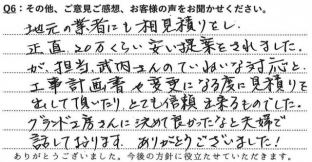 Q6：その他、ご意見ご感想、お客様の声をお聞かせください。
地元の業者にも相見積りをし、
正直20万くらい安い提案をされました。
が、担当、武内さんのていねいな対応と、
工事計画書や変更になる度に見積りを
出して頂いたりとても信頼出来るものでした。
グランド工房さんに決めて良かったなと夫婦で
話しております。ありがとうございました!
ありがとうございました。今後の方針に役立たせていただきます。